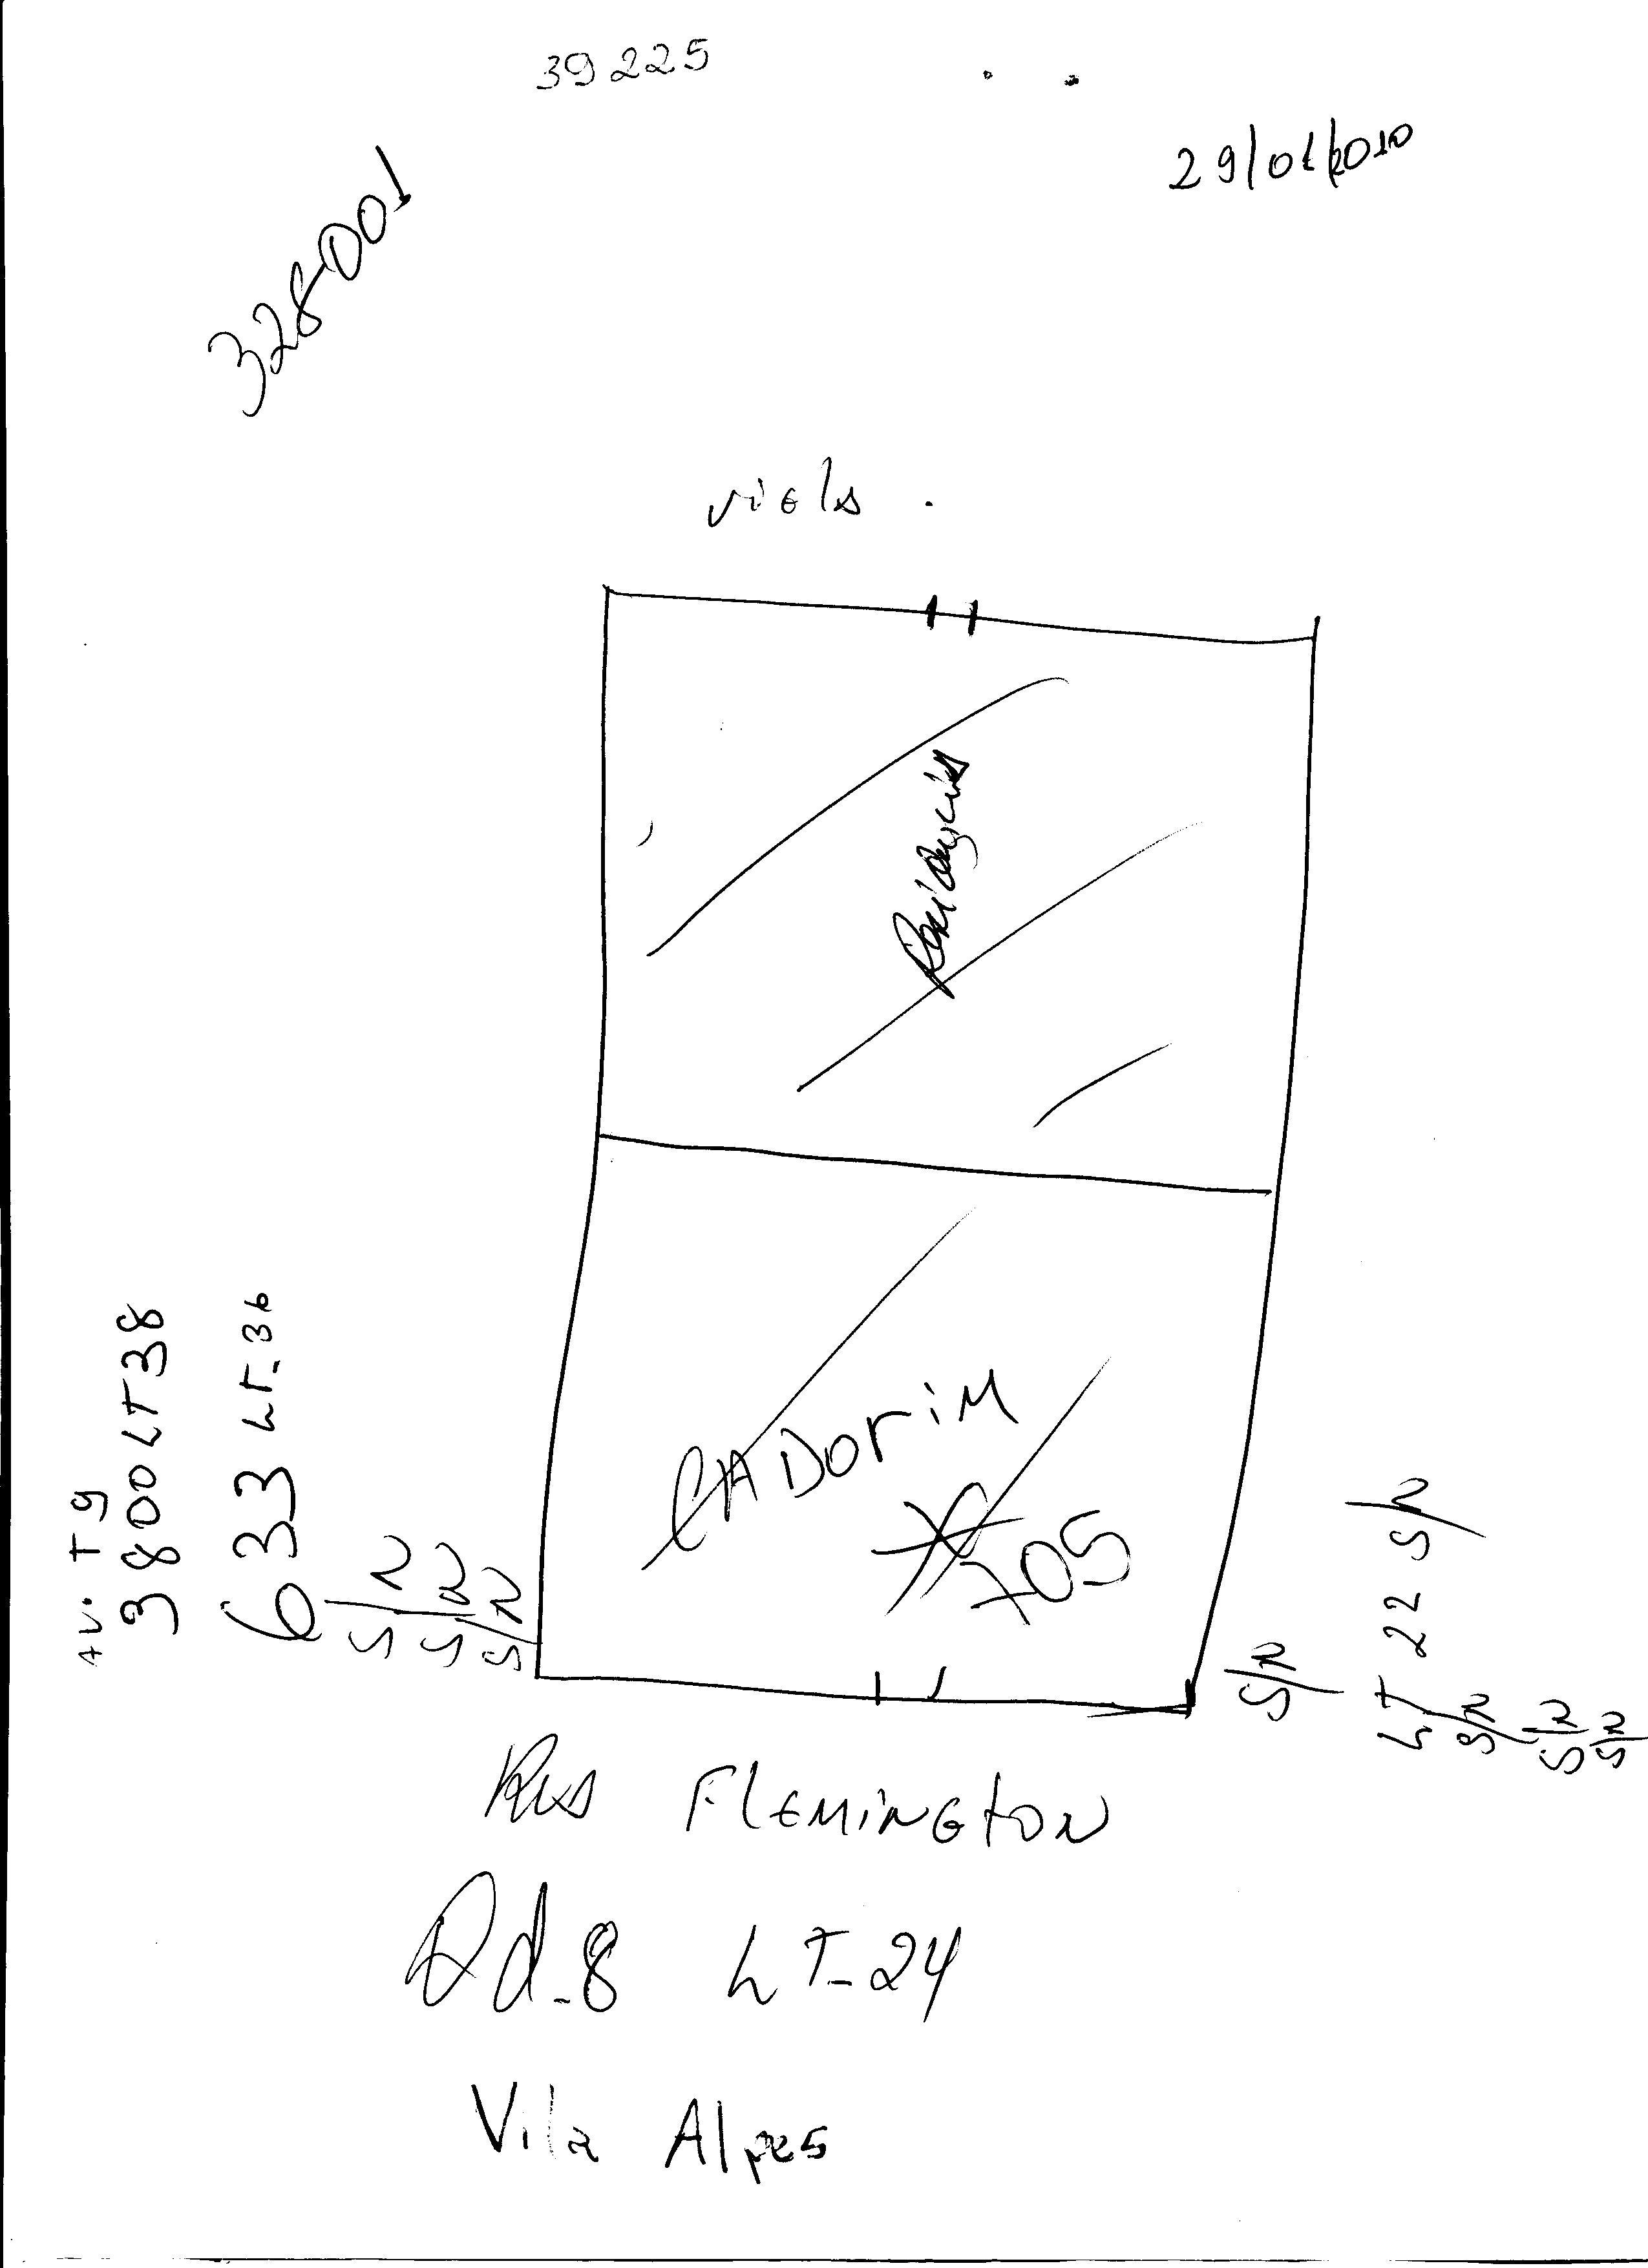 39225
29/01/2010
328-001
viela
CADoriM
705
AV. T9
3800 LT 38
633 LT-36
S/N
S/N
S/N
S/N
LT 22 S/N
S/N
S/N
S/N
Rua FlEMiNGtoN
Qd-8 LT-24
Vila Alpes